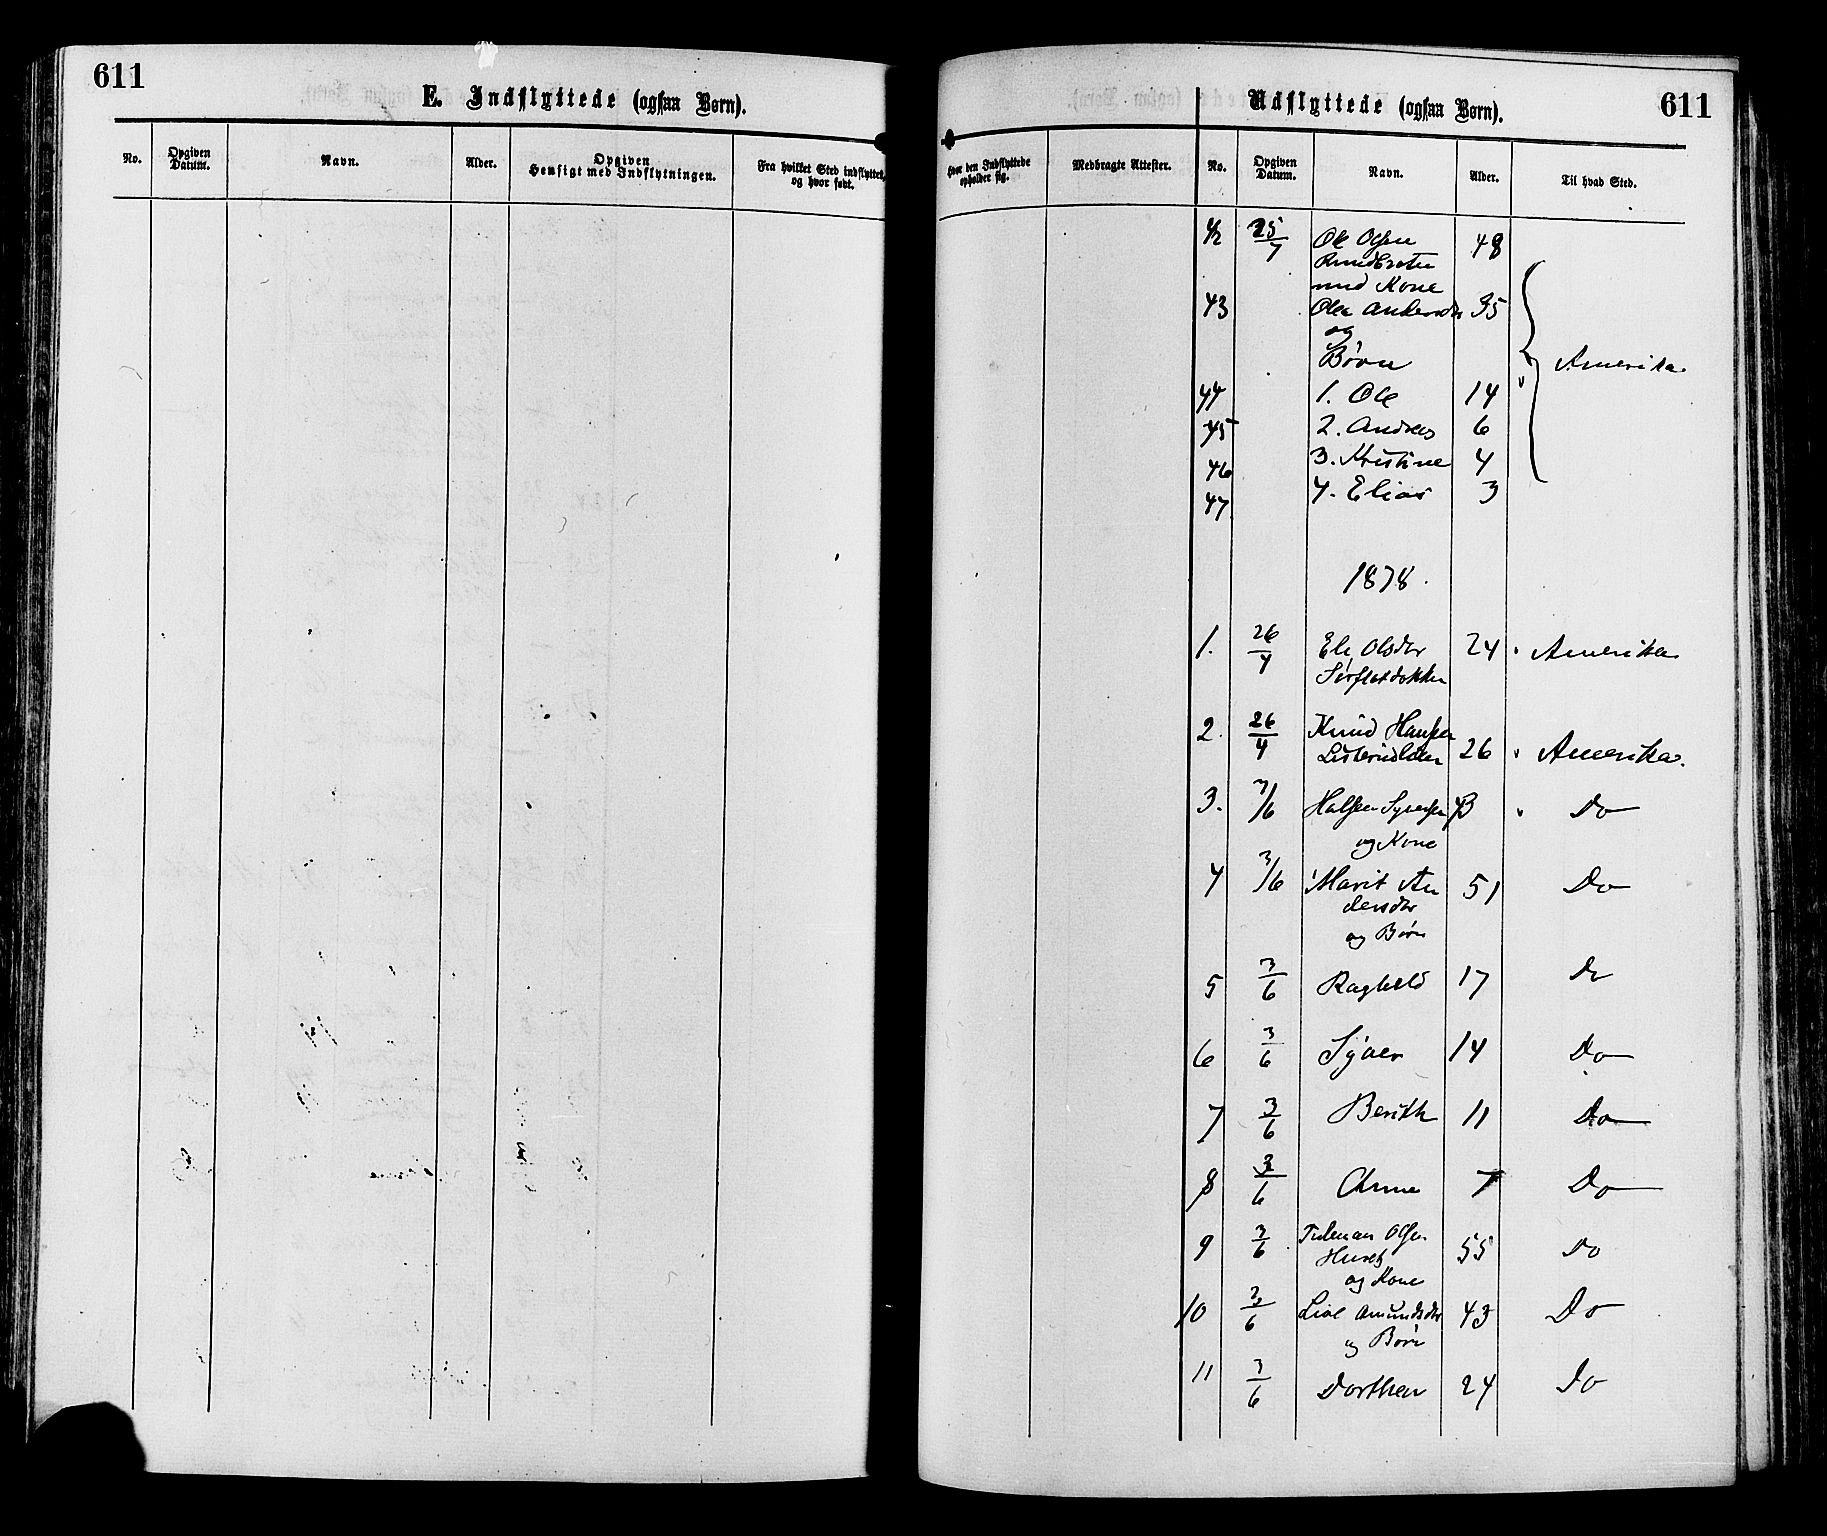 611
E. Indflyttede (ogsaa Børn).
No.
Opgiven Datum.
Navn.
Alder.
Opgiven Hensigt med Indflytningen.
Fra hvilket Sted indflyttet, og hvor født.
Udflyttede (ogsaa Børn).
611
Hvor den Indflyttede opholder sig.
Medbragte Attester.
No.
Opgiven Datum.
Navn.
Alder.
Til hvad Sted.
42 25/7 Ole Olsen 48
med Kone
43 35
og
Børn
Amerika
44 1. Ole 14
45 2. Andreas 6
46 3. Kristine 4
47 4. Elias 3
1878.
1. 26/4 Eli Olsdtr 24 Amerika
2. 26/4 Knud Hansen
26 Amerika.
3. 3/6 Do
og Kone
4 3/6 Marit An 51 Do
dersdtr
og Børn
5 3/6 Raghild 17 Do
6 3/6 Syver 14 Do
7 3/6 Berith 11 Do
8 3/6 Arne 7 Do
9 3/6 Olsen 55 Do
og Kone
10 3/6 Live Amundsdtr 43 Do
og Børn
11 3/6 Dorthea 24 Do